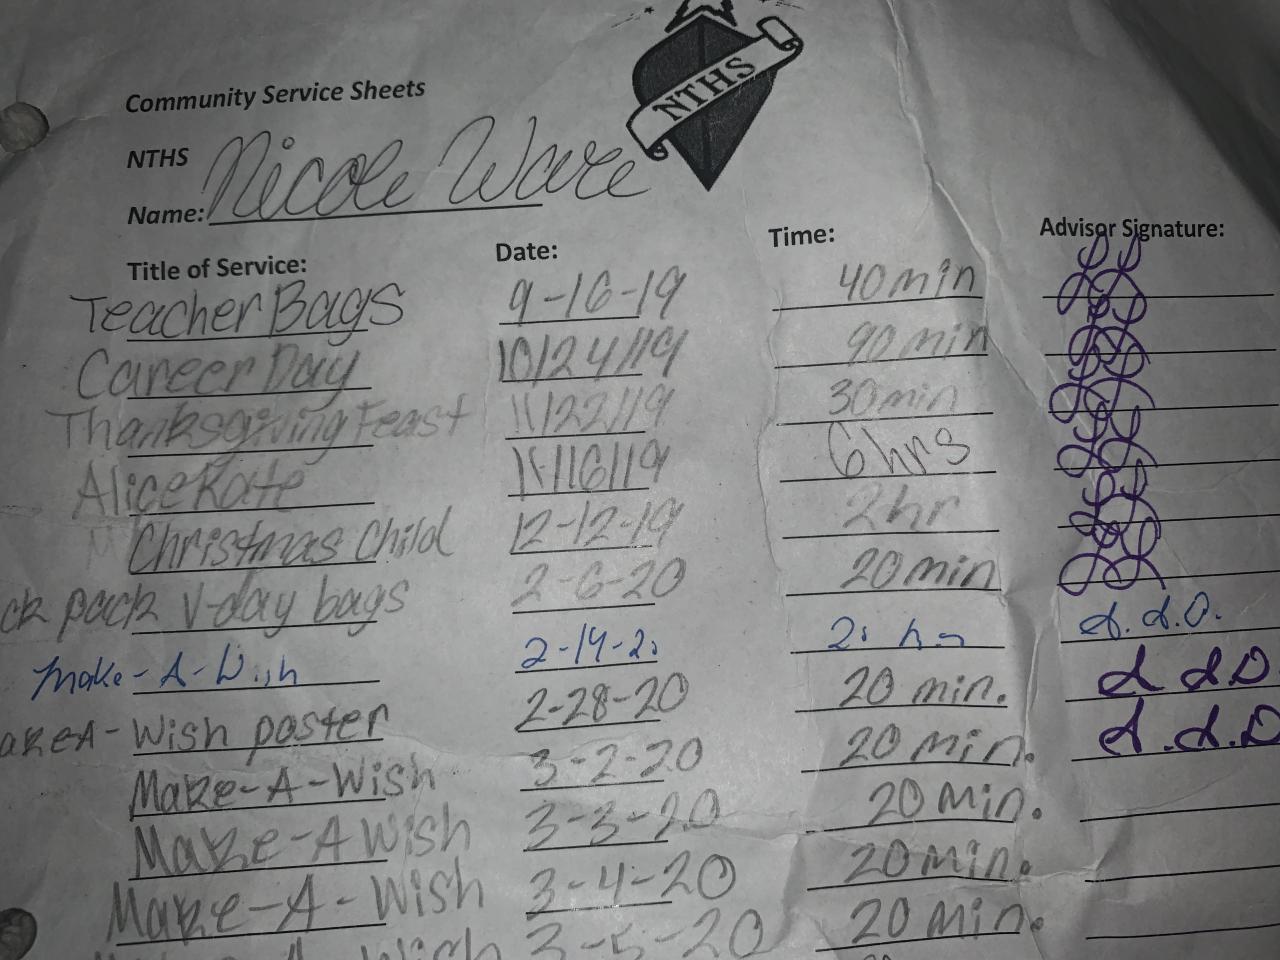 NTHS
Community Service Sheets
NTHS
Name: Nicole Ware
Title of Service: Date: Time: Advisor Signature:
Teacher Bags 9-16-19 40 min
Career Day 10/24/19 90 min
Thanksgiving Feast 11/22/19 30 min
Alice Kate 11/16/19 6 hrs
Christmas Child 12-12-19 2 hr
ck pack V-day bags 2-6-20 20 min
Make-A-Wish 2-14-20 d.d.O.
akeA-Wish poster 2-28-20 20 min. d d D
Make-A-Wish 3-2-20 20 min. d.d.D
Make-A Wish 3-3-20 20 min.
Make-A-Wish 3-4-20 20 min.
A-Wish 3-5-20 20 min.